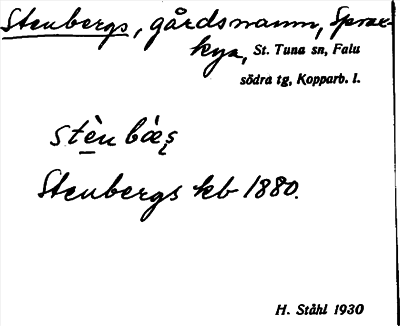 Stenbergs, gårdsnamn, Sprax-
kya, St. Tuna sn, Falu
södra tg, Kopparb. l.
stènbàes
Stenbergs kb 1880.
H. Ståhl 1930